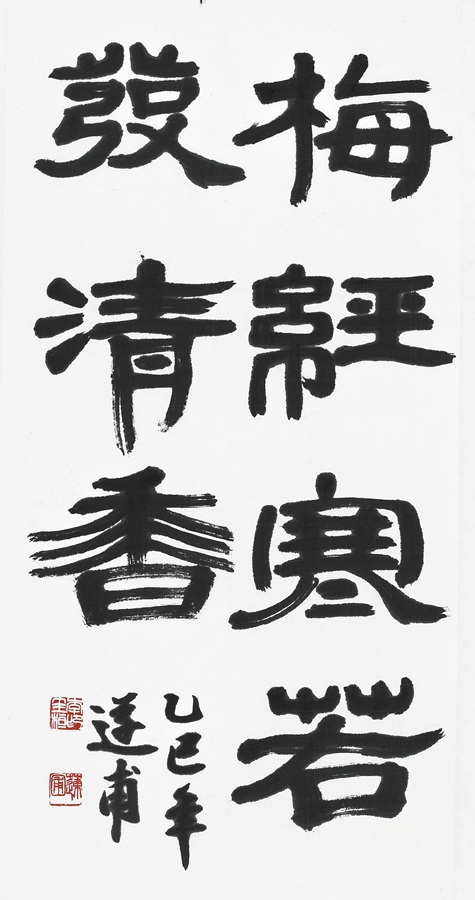 梅經寒若
發清香
乙巳年
甫